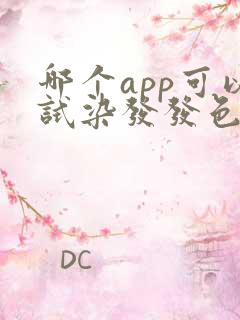 哪个app可以
試染發發色
DC